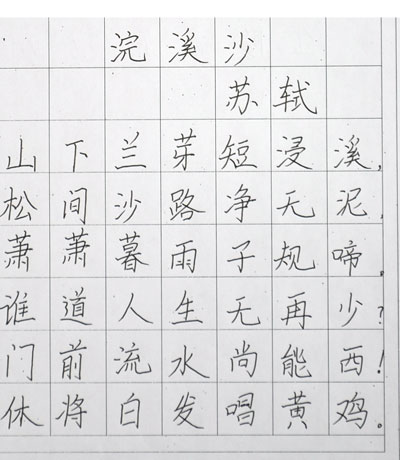 浣溪沙
苏轼
山下兰芽短浸溪,
松间沙路净无泥,
萧萧暮雨子规啼。
谁道人生无再少?
门前流水尚能西!
休将白发唱黄鸡。